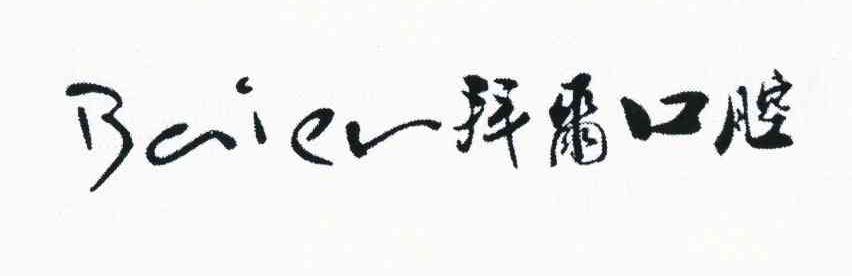 Baier 拜爾口腔